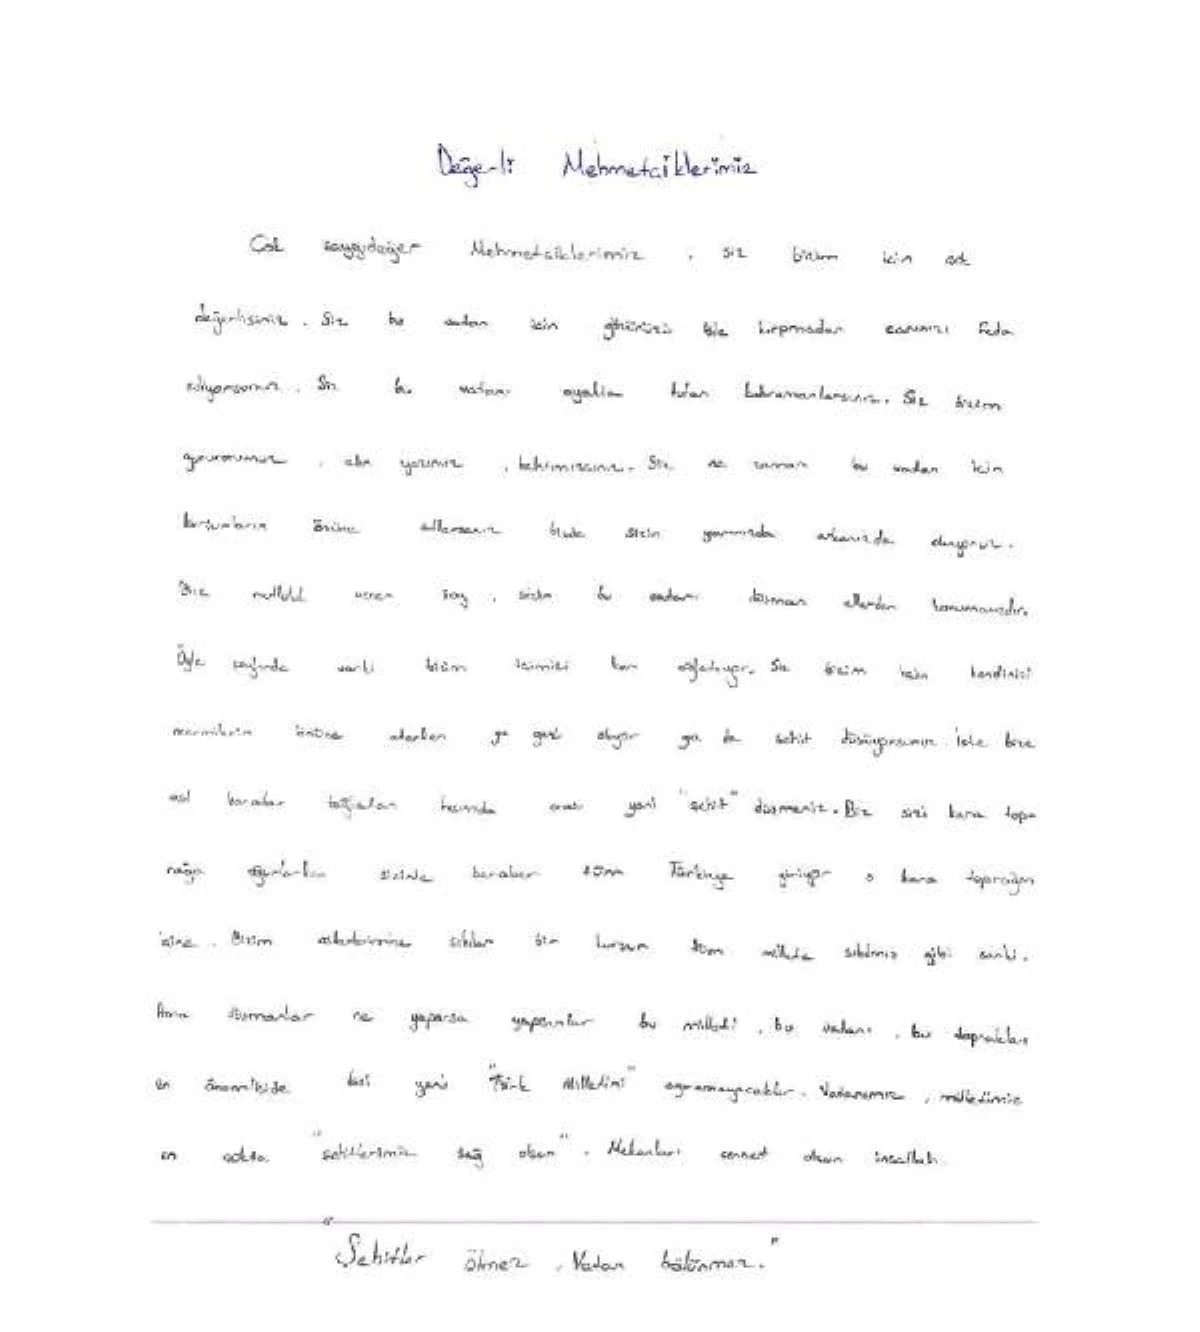 Değerli Mehmetciklerimiz
Cok saygıdeğer Mehmetciklerimiz , siz bizim icin cok
değerlisiniz . Siz bu vatan icin gözünüzü bile kırpmadan canınızı feda
ediyorsunuz . Siz bu vatanı ayakta tutan kahramanlarsınız . Siz bizim
gururumuz , alın yazımız , Siz ne zaman bu vatan icin
kurşunların önüne atlarsanız bizde sizin yanınızda arkanızda duruyoruz .
Bizi mutlu şey , sizin bu vatanı düsman ellerden korumanızdır.
Öyle sanki bizim icimizi kan ağlatıyor. Siz bizim icin kendinizi
mermilerin önüne atarken ya gazi oluyor ya da sehit düsüyorsunuz . iste bize
asıl koyan yani "sehit" düsmeniz . Biz sizi kara topr-
rağa uğurlarken sizinle beraber tüm Türkiye giriyor o kara toprağın
icine . Bizim askerlerimize sıkılan bir kursun tüm millete sıkılmıs gibi sanki .
Ama düsmanlar ne yaparsa yapsınlar bu milleti , bu vatanı , bu toprakları
en önemlisi de bizi yani "Türk Milletini" . Vatanımız , milletimiz
en cokta "sehitlerimiz sağ olsun" . Mekanları cennet olsun insallah.
"Sehitler ölmez , Vatan bölünmez."